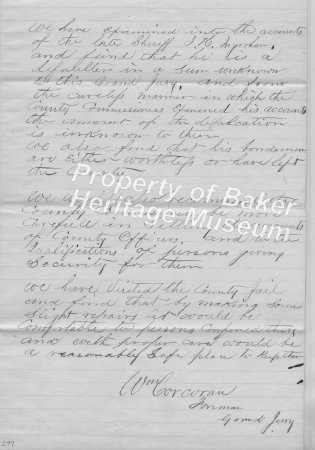 We have examined into the accounts
of the late Sheriff J. H. Ingraham
and find that he is a
defaulter in a sum unknown
to this Grand Jury, and from
the careless manner in which the
County Commissioners Examined his accounts
the amount of the defalcation
is unknown to them
We also find that his bondsmen
are Either worthless or have left
the
We
County be more
Carefull in
of County Officers and
Qualifications of persons giving
Security for them
We have Visited the County jail
and find that by making some
slight repairs it would be
Comfortable to persons Confined there
and with proper care would be
a reasonably Safe place to Keep them
Wm Corcoran
Foreman
Grand Jury
Property of Baker
Heritage Museum